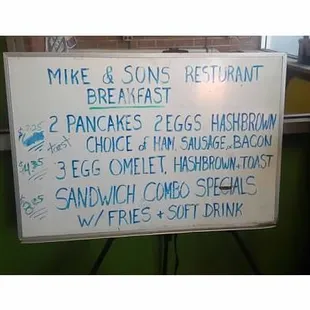 MIKE & SONS RESTURANT
BREAKFAST
2 PANCAKES 2 EGGS HASHBROWN
CHOICE of HAM, SAUSAGE, or BACON
3 EGG OMELET, HASHBROWN + TOAST
SANDWICH COMBO SPECIALS
W/ FRIES + SOFT DRINK